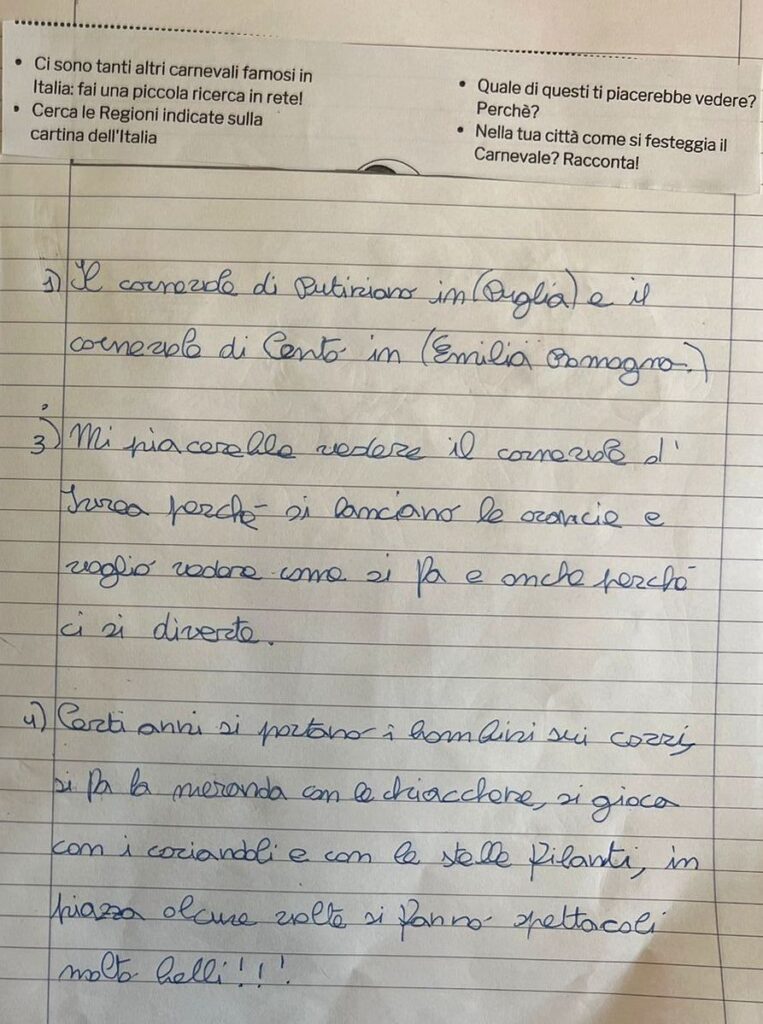 • Ci sono tanti altri carnevali famosi in
Italia: fai una piccola ricerca in rete!
• Cerca le Regioni indicate sulla
cartina dell'Italia
• Quale di questi ti piacerebbe vedere?
Perchè?
• Nella tua città come si festeggia il
Carnevale? Racconta!
1) Il carnevale di Putiniano in (Puglia) e il
carnevale di Cento in (Emilia Romagna.)
3) Mi piacerebbe vedere il carnevale d'
Ivrea perché si lanciano le arancie e
voglio vedere come si fa e anche perché
ci si diverte.
4) Certi anni si portano i bambini sui carri,
si fa la merenda con le chiacchere, si gioca
con i coriandoli e con le stelle filanti, in
piazza alcune volte si fanno spettacoli
molto belli!!!